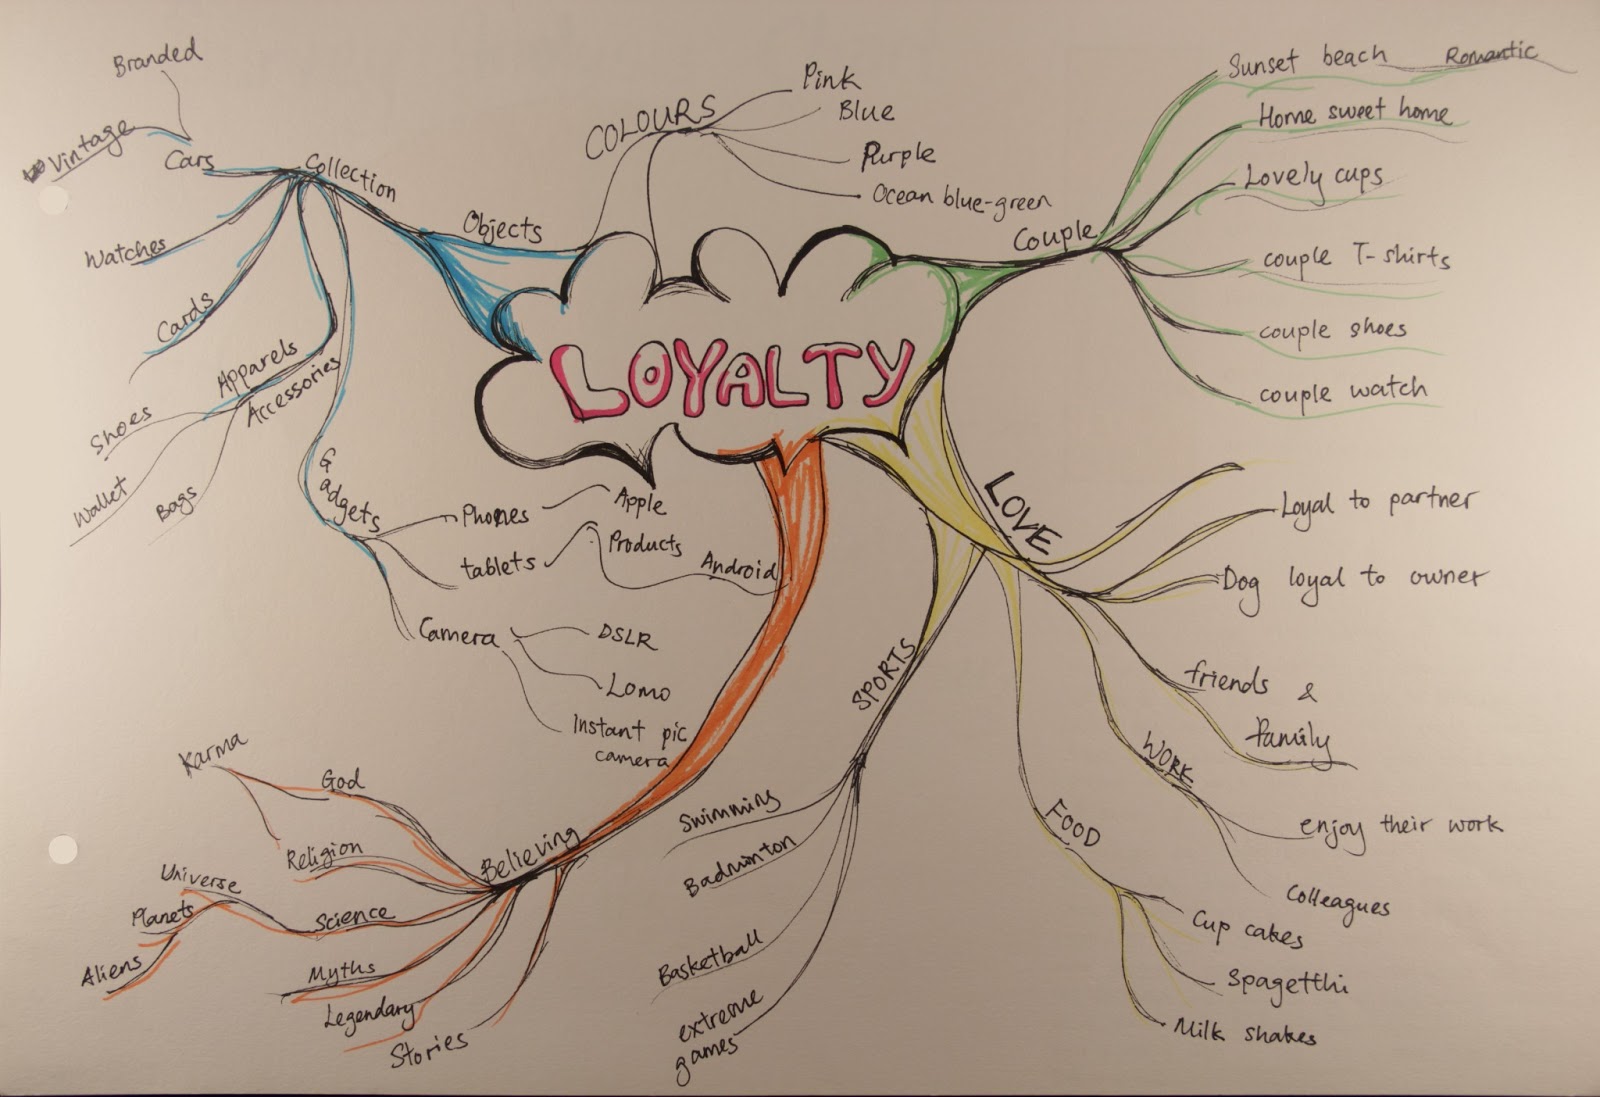 LOYALTY
COLOURS
Pink
Blue
Purple
Ocean blue-green
Objects
Collection
Cars
Branded
Vintage
Watches
Cards
Apparels
Accessories
Shoes
Wallet
Bags
Gadgets
Phones
Apple
tablets
Products
Android
Camera
DSLR
Lomo
Instant pic
camera
Couple
Sunset beach
Romantic
Home sweet home
Lovely cups
couple T-shirts
couple shoes
couple watch
LOVE
Loyal to partner
Dog loyal to owner
friends &
family
WORK
enjoy their work
Colleagues
FOOD
Cup cakes
Spagetthi
Milk shakes
SPORTS
Swimming
Badminton
Basketball
extreme
games
Believing
God
Karma
Religion
Science
Universe
Planets
Aliens
Myths
Legendary
Stories